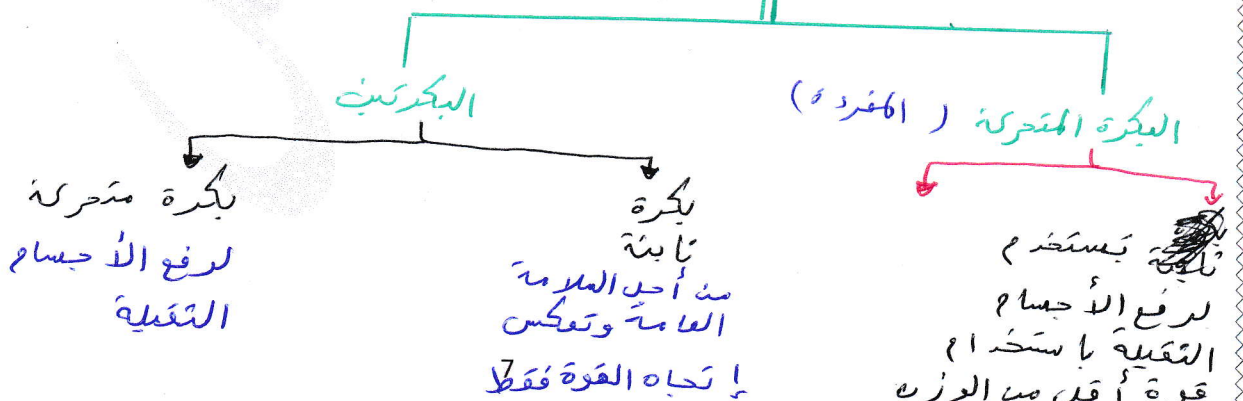 البكرة المتحركة (المفردة)
البكرتين
تستخدم
لرفع الأجسام
الثقيلة باستخدام
قوة أقل من الوزن
بكرة
ثابتة
من أجل السلامة
العامة وتعكس
إتجاه القوة فقط
7
بكرة متحركة
لرفع الأجسام
الثقيلة